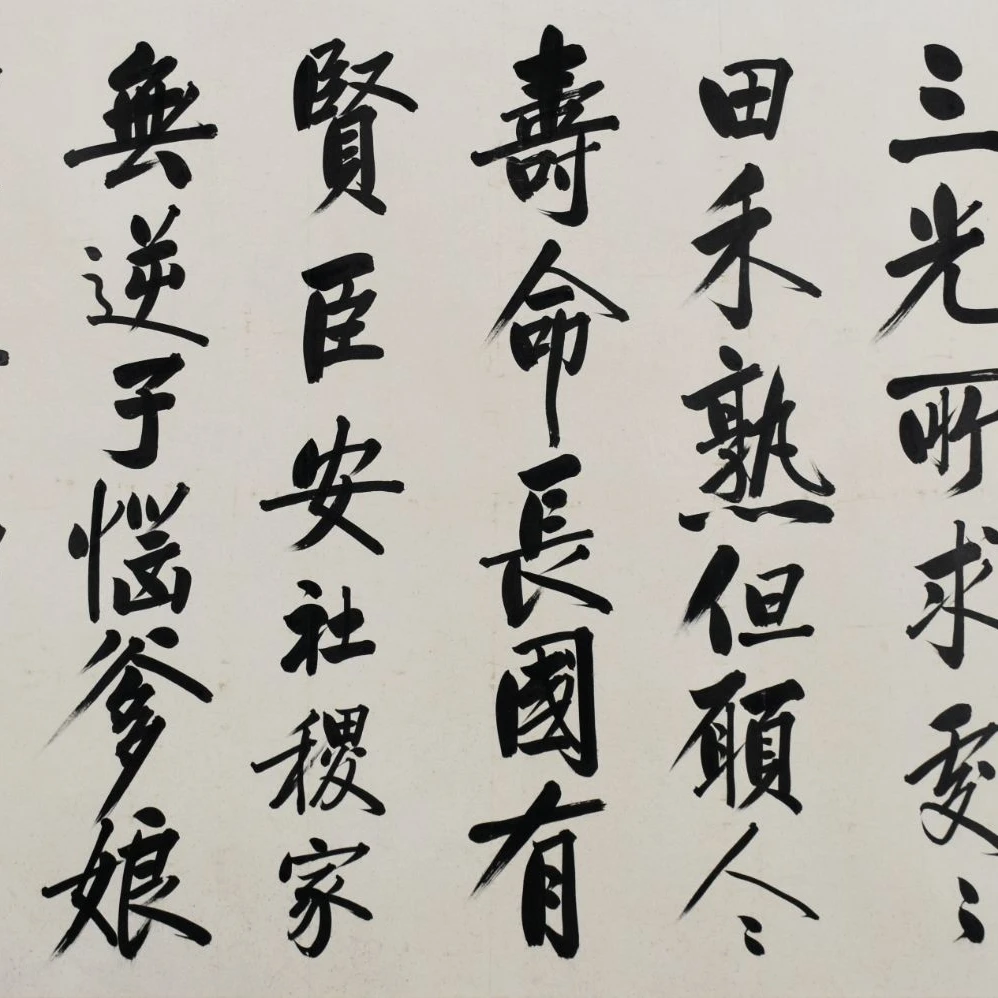 三光所求處〻
田禾熟但願人〻
壽命長國有
賢臣安社稷家
無逆子惱爹娘